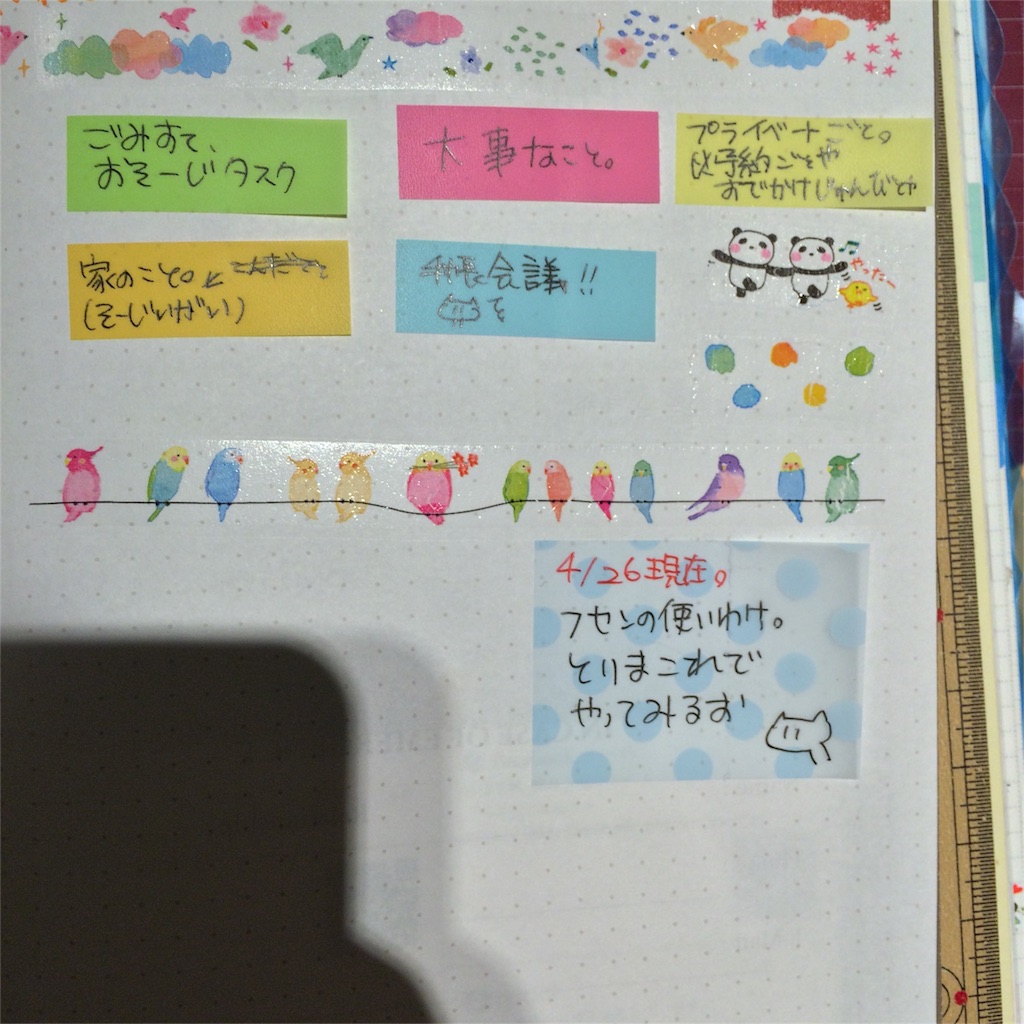 ごみすて、
おそーじタスク
大事なこと。
プライベートごと。
予約ごとや
おでかけじゅんびとや
家のこと。
(そーじいがい)
手帳会議!!
を
やったー
4/26現在。
フセンの使いわけ。
とりまこれで
やってみるお